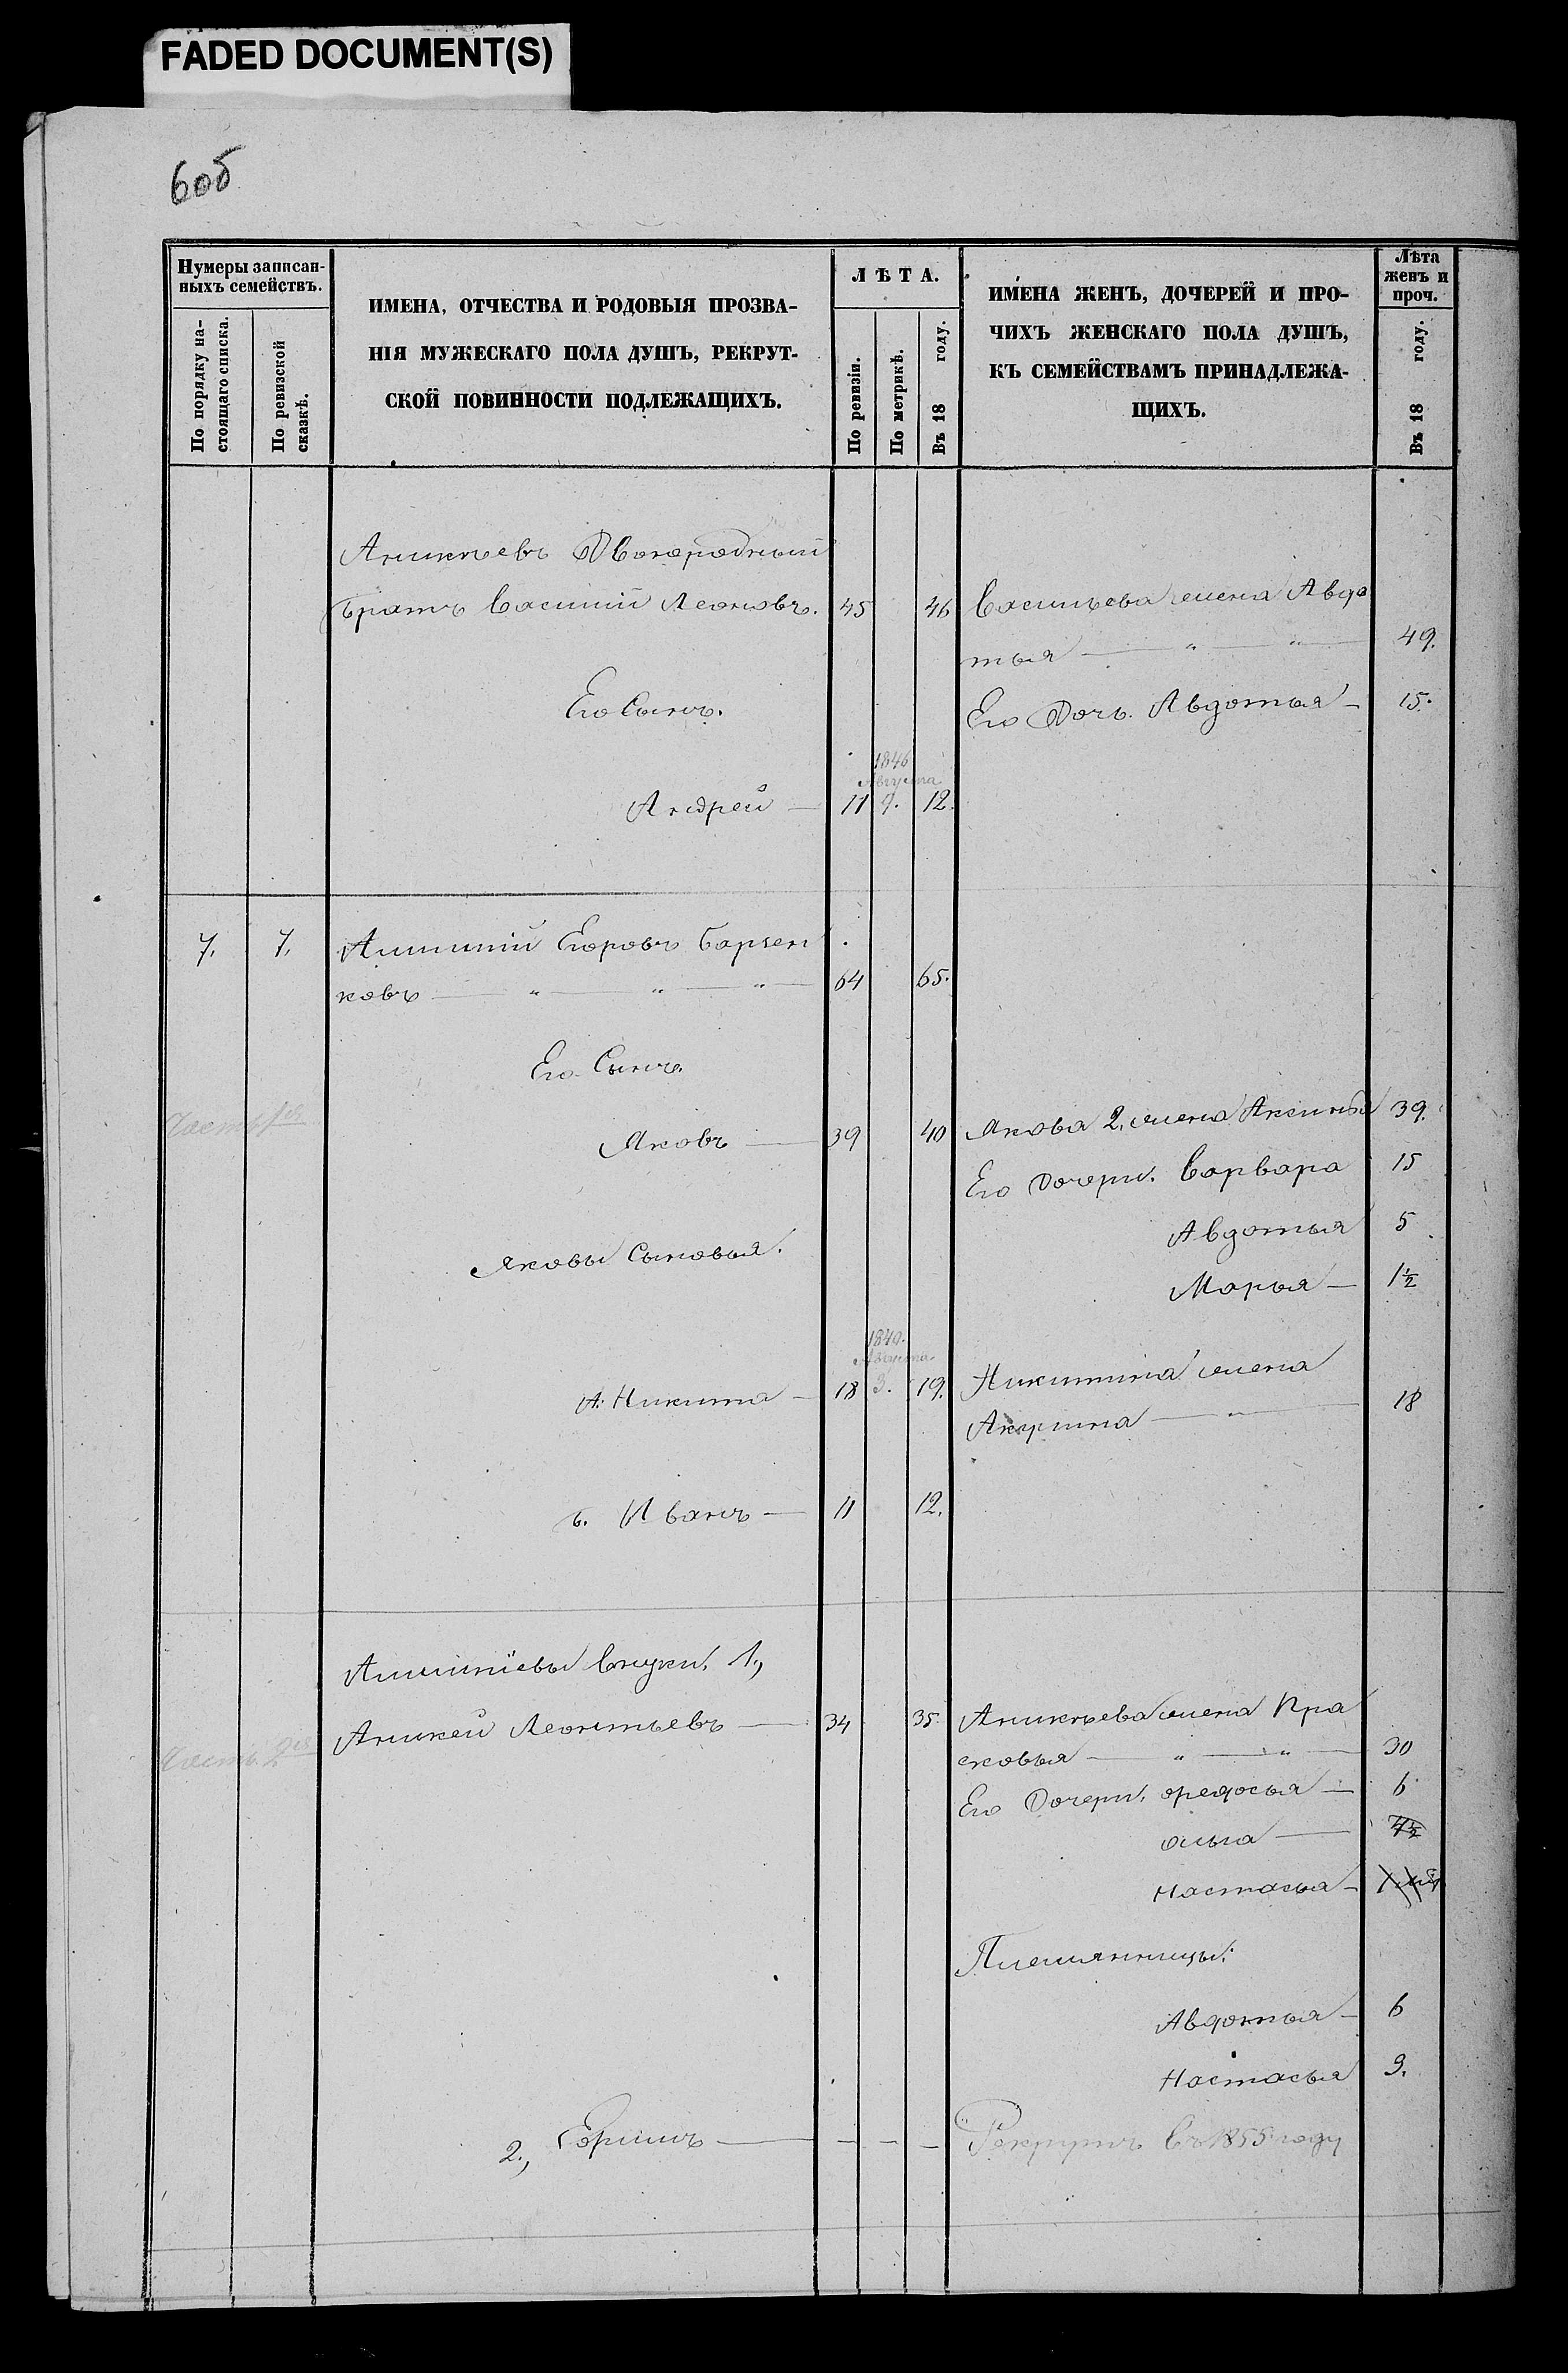 FADED DOCUMENT(S)
6об
Нумеры записан-
ныхъ семействъ.
По порядку на-
стоящаго списка.
По ревизской
сказкѣ.
ИМЕНА, ОТЧЕСТВА И РОДОВЫЯ ПРОЗВА-
НІЯ МУЖЕСКАГО ПОЛА ДУШЪ, РЕКРУТ-
СКОЙ ПОВИННОСТИ ПОДЛЕЖАЩИХЪ.
ЛѢТА.
По ревизіи.
По метрикѣ.
Въ 18 году.
ИМЕНА ЖЕНЪ, ДОЧЕРЕЙ И ПРО-
ЧИХЪ ЖЕНСКАГО ПОЛА ДУШЪ,
КЪ СЕМЕЙСТВАМЪ ПРИНАДЛЕЖА-
ЩИХЪ.
Лѣта
женъ и
проч.
Въ 18 году.
Аникѣевъ Двоюродный
братъ Василій Леоновъ. 45 46 Васильева жена Авдо
тья — „ — „ — 49.
Его Сынъ. Его Дочь. Авдотья — 15.
1846
Августа
Андрей — 11 9. 12.
7. 7. Епорова Барсен
ковъ — „ — „ — „ — 64 65.
Его Сынъ.
Часть 1я
Яковъ — 39 40 Якова 2. жена Аксинья 39.
Его дочери. Варвара 15
Авдотья 5
Яковы Сыновья.
Марья — 1½
1840.
Августа
А. Никита — 18 3. 19. Никитина жена
Акулина — „ — 18
б. Иванъ — 11 12.
внуки. 1.,
Аникей Леонтьевъ — 34 35. Аникѣева жена Пра
Часть 2я
сковья — „ — „ — 30
Его Дочери. Ѳедосья — 6
Ольга — 4½
Настасья —
Племянницы:
Авдотья — 6
Настасья 3.
2., Ефимъ — — — — Рекрутъ Въ 1855 году